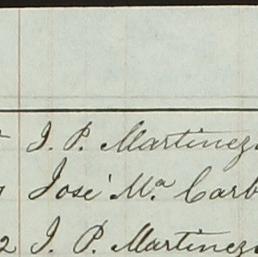 J. P. Martinez
José Mª Carb
2 J. P. Martinez